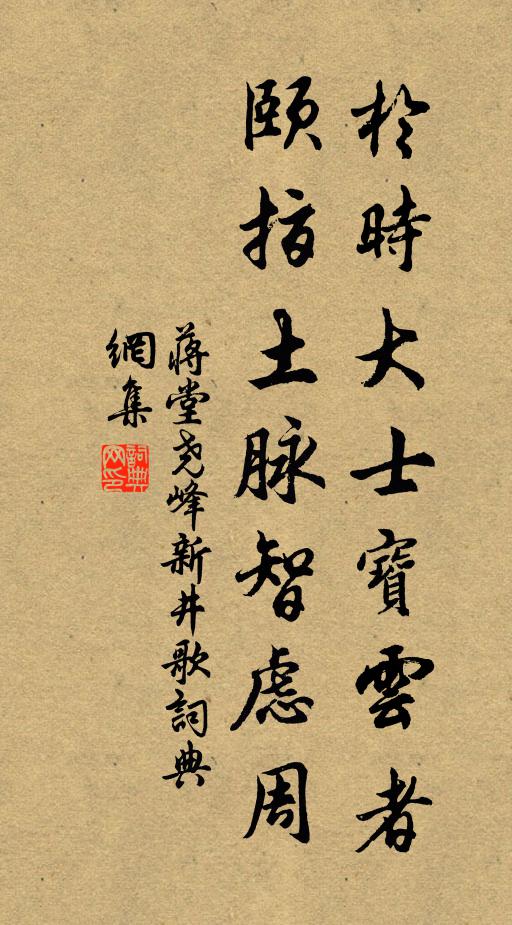 於時大士寶雲者
頤指土脉智慮周
蔣堂尧峰新井歌詞典
網集
詞典
网印